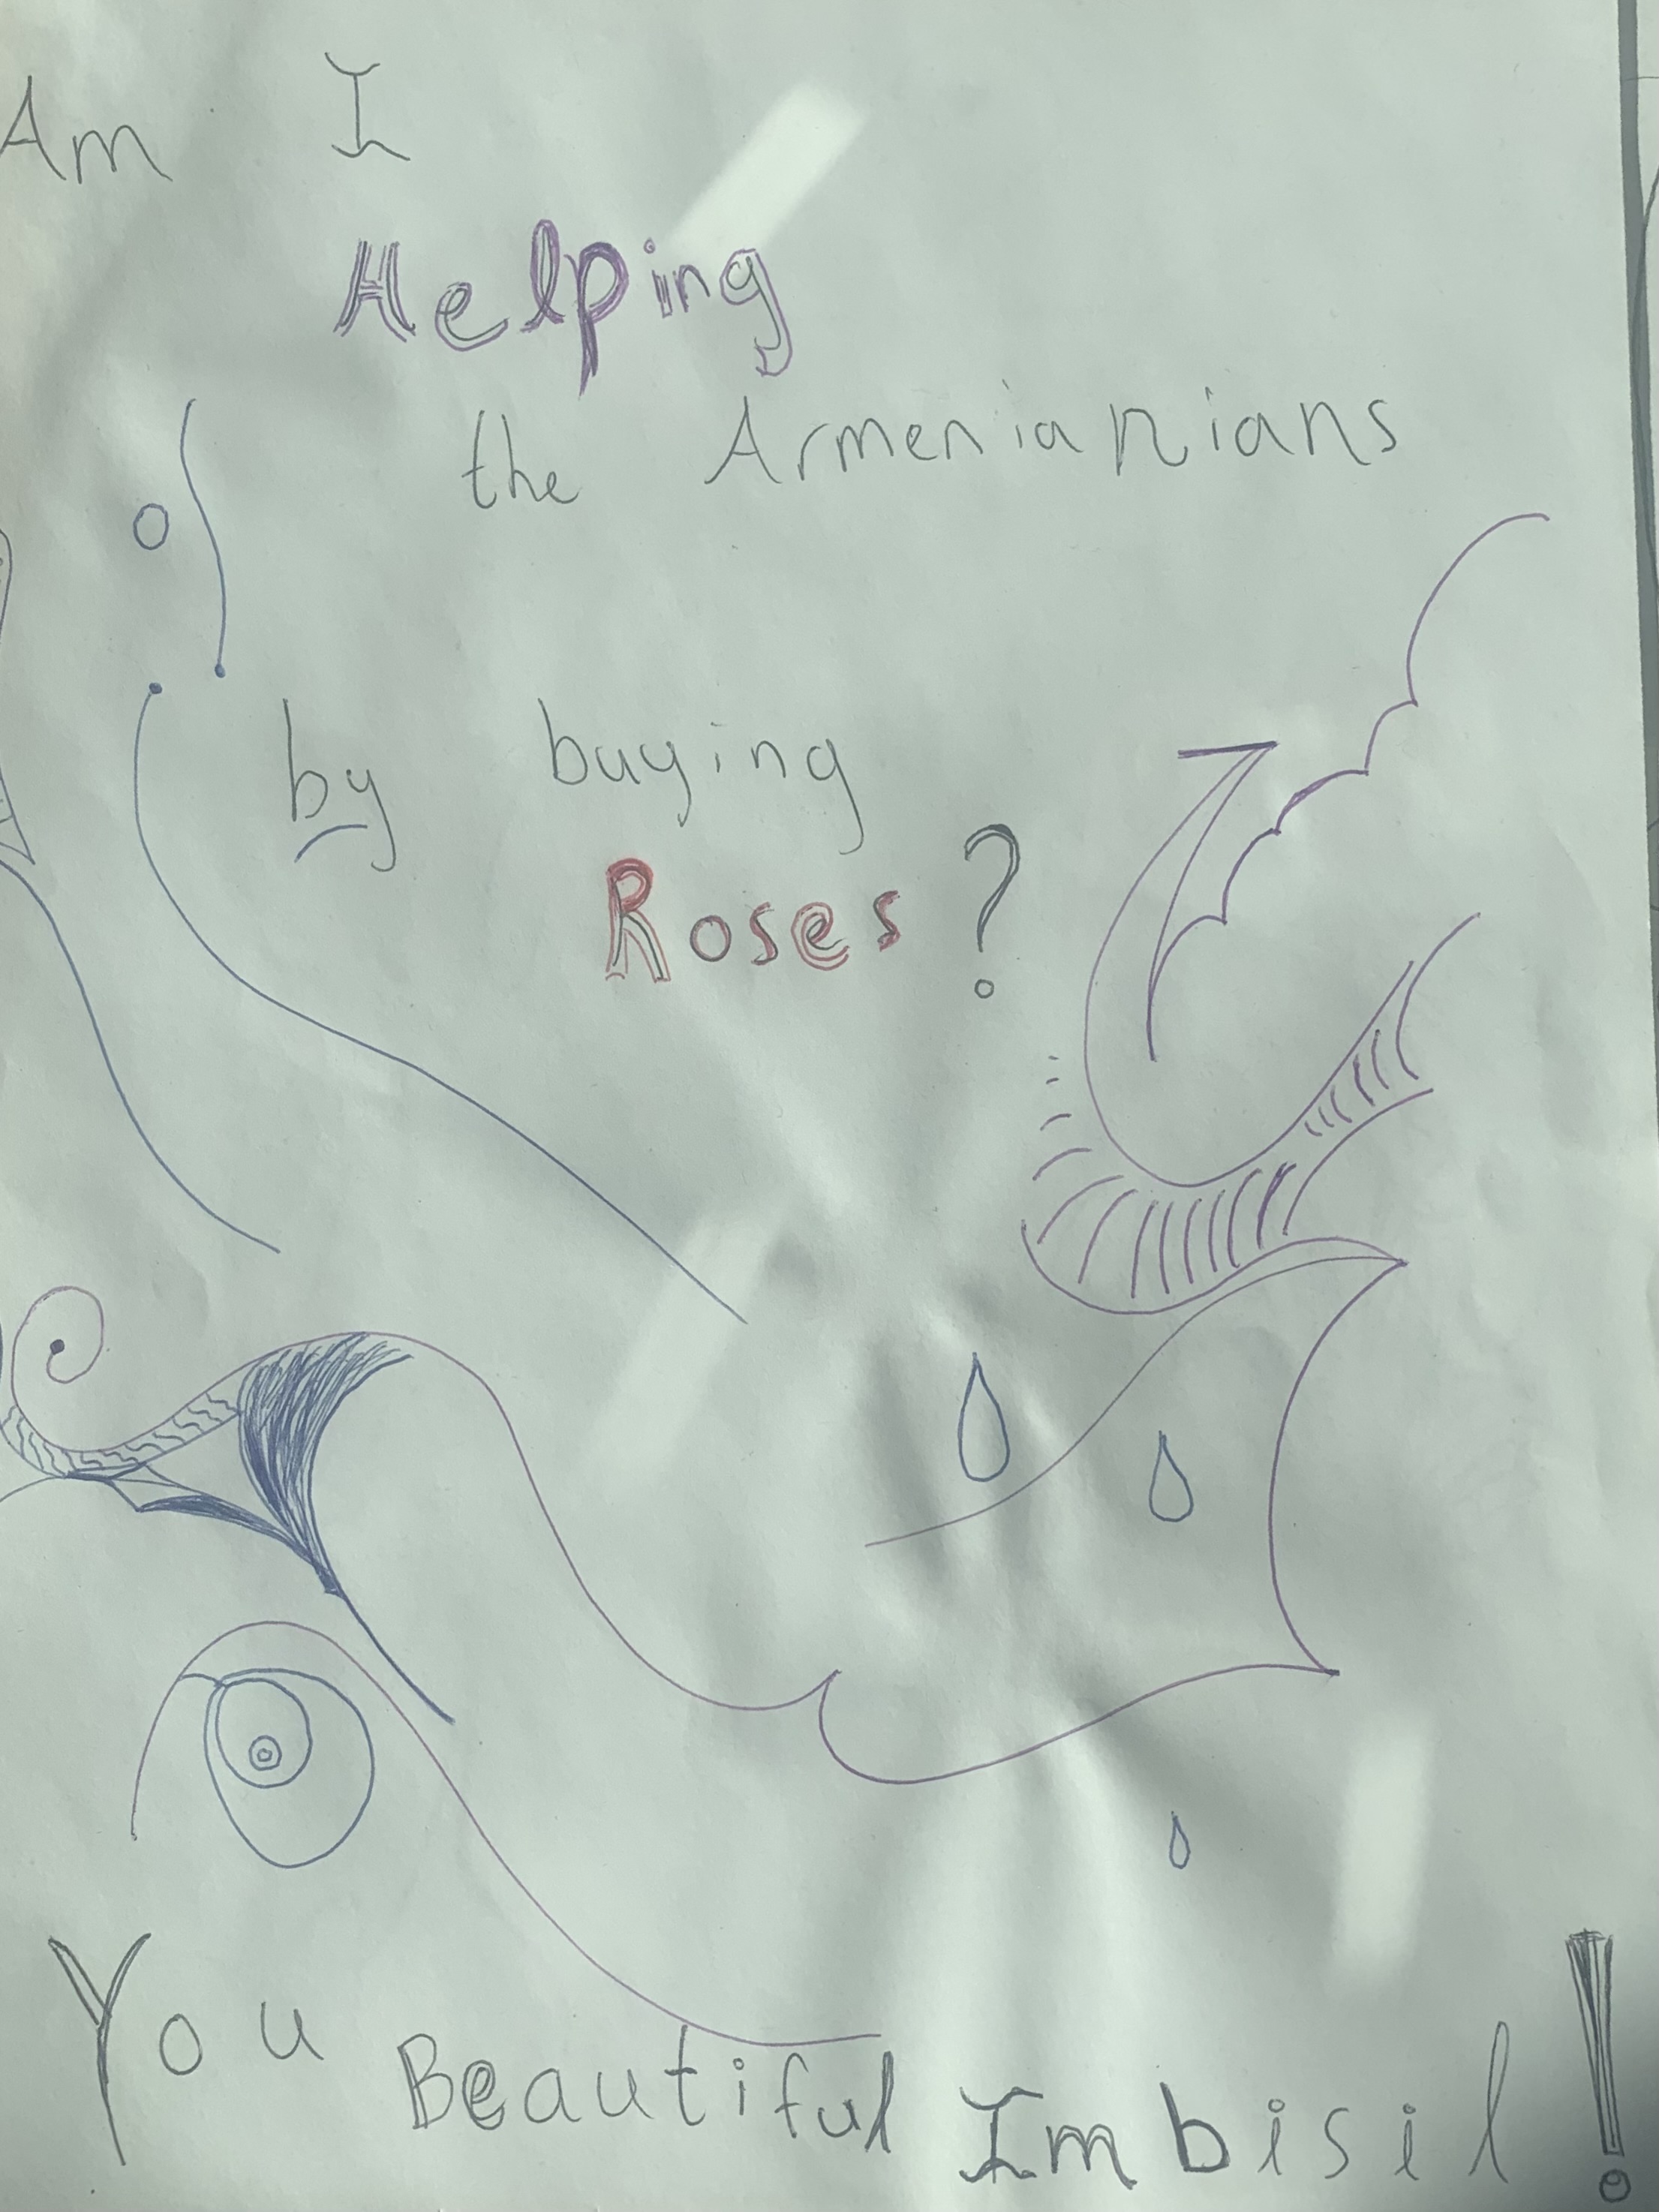 Am I
Helping
the Armenianians
by buying
Roses?
You Beautiful Imbisil!